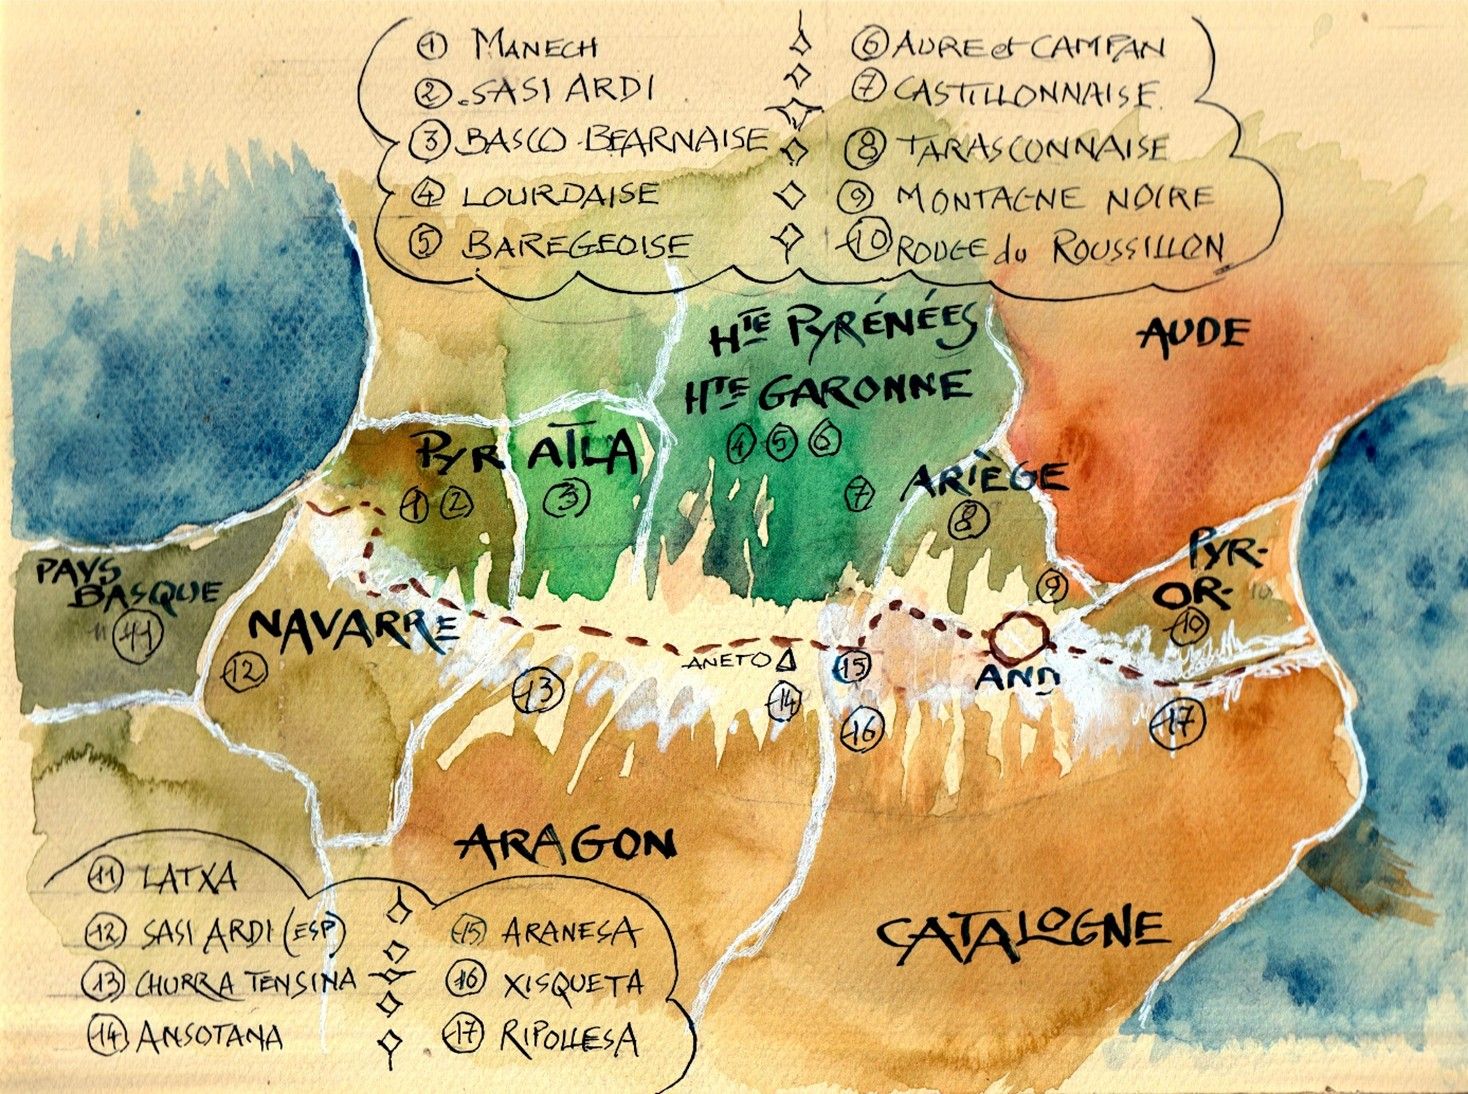 ① MANECH
② SASI ARDI
③ BASCO-BEARNAISE
④ LOURDAISE
⑤ BAREGEOISE
⑥ AURE et CAMPAN
⑦ CASTILLONNAISE
⑧ TARASCONNAISE
⑨ MONTAGNE NOIRE
⑩ ROUGE du ROUSSILLON
HTE PYRÉNÉES
HTE GARONNE
④ ⑤ ⑥
⑦
AUDE
PYR ATLA
① ② ③
ARIÈGE
⑧
⑨
PYR-
OR-
⑩
PAYS
BASQUE
⑪
NAVARRE
⑫
⑬
ANETO
⑭
⑮
⑯
AND
⑰
ARAGON
CATALOGNE
⑪ LATXA
⑫ SASI ARDI (ESP)
⑬ CHURRA TENSINA
⑭ ANSOTANA
⑮ ARANESA
⑯ XISQUETA
⑰ RIPOLLESA